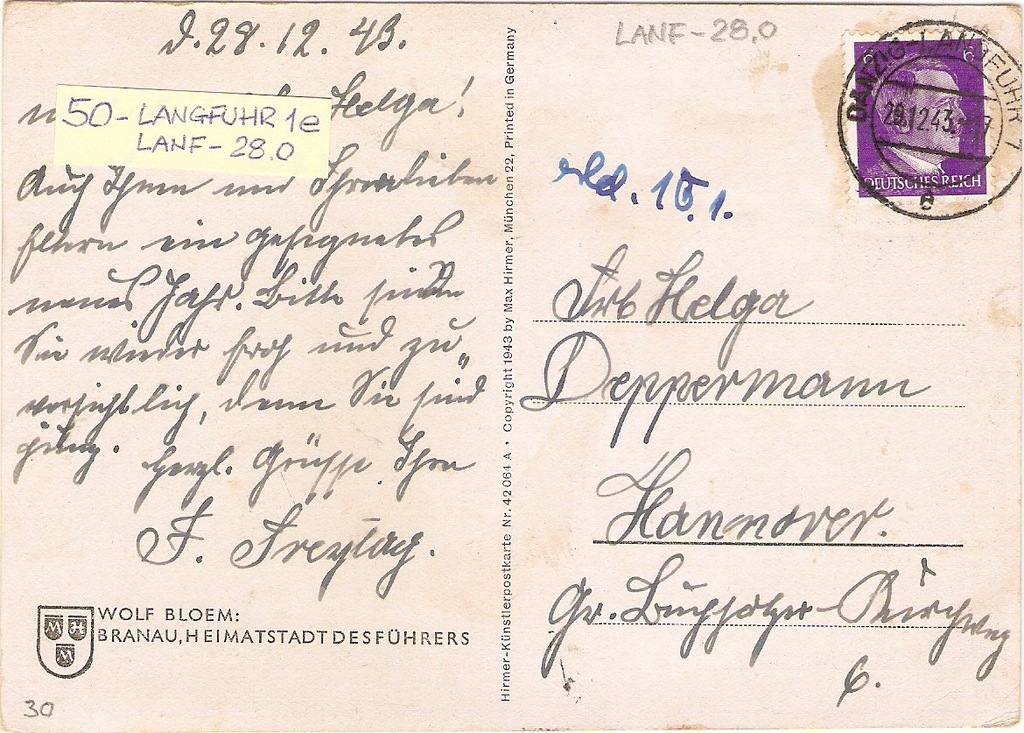 d. 28. 12. 43.
Helga!
50- LANGFUHR 1e
LANF- 28.0
Auch Ihnen und Ihren lieben
Eltern ein gesegnetes
neues Jahr. Bitte
Sie wieder froh und zu„
versichtlich, denn Sie sind
jung. Herzl. Grüsse Ihre
F. Freytag.
WOLF BLOEM:
BRANAU, HEIMATSTADT DES FÜHRERS
30
Hirmer-Künstlerpostkarte Nr. 42 064 A • Copyright 1943 by Max Hirmer, München 22, Printed in Germany
LANF-28.0
DANZIG-LANGFUHR 1
29.12.43
e
6 6
DEUTSCHES REICH
10.1.
Frl. Helga
Deppermann
Hannover.
Gr. Buchholzer Kirchweg
6.